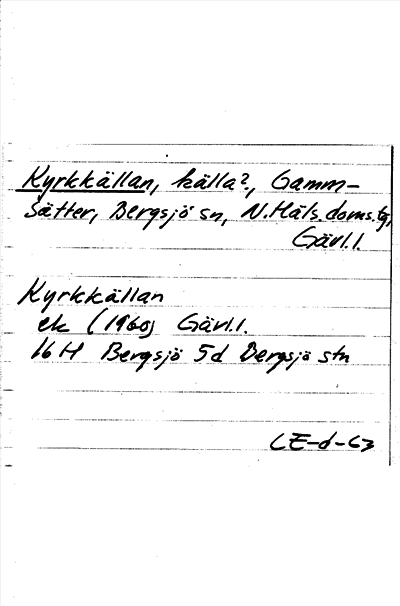 Kyrkkällan, källa?, Gamm-
sätter, Bergsjö sn, N. Häls. doms.tg,
Gävl.l.
Kyrkkällan
ek (1960) Gävl.l.
16H Bergsjö 5d Bergsjö stn
CE-d-63